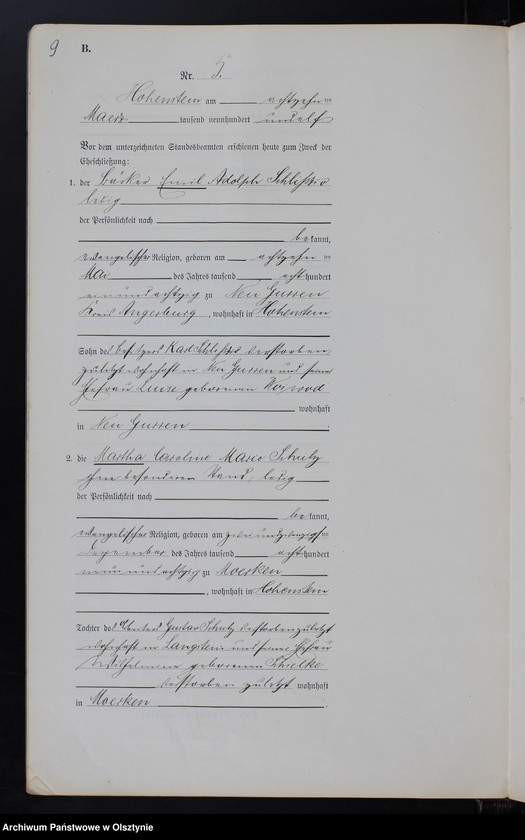 9
B.
Nr. 5.
Hohenstein am achtzehnten
Maerz tausend neunhundert undelf
Vor dem unterzeichneten Standesbeamten erschienen heute zum Zweck der
Eheschließung:
1. der Bäcker Emil Adolph
ledig
der Persönlichkeit nach
bekannt,
evangelischer Religion, geboren am achtzehnten
Mai des Jahres tausend achthundert
einundachtzig zu Neu Gurren
Kreis Angerburg, wohnhaft in Hohenstein
Sohn des Besitzers Karl verstorben
zuletzt wohnhaft in Neu Gurren und seiner
Ehefrau Luise geborenen Woiwod
wohnhaft
in Neu Gurren
2. die Martha Caroline Marie Schulz
ohne besonderen Stand, ledig
der Persönlichkeit nach
bekannt,
evangelischer Religion, geboren am zweiundzwanzigsten
Dezember des Jahres tausend achthundert
neunundachtzig zu Moerken
, wohnhaft in Hohenstein
Tochter des Gustav Schulz verstorben zuletzt
wohnhaft in und seiner Ehefrau
Wilhelmine geborenen
verstorben zuletzt wohnhaft
in Moerken
Archiwum Państwowe w Olsztynie